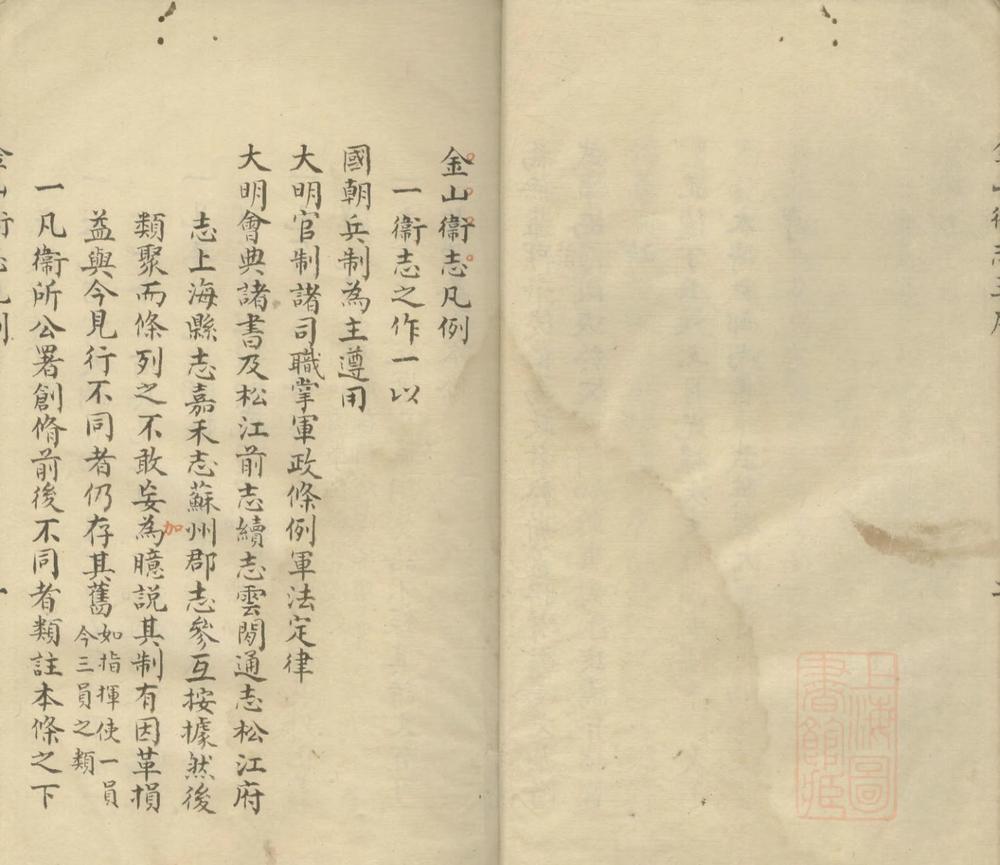 金山衞志凡例
一衞志之作一以
國朝兵制為主遵用
大明官制諸司職掌軍政條例軍法定律
大明會典諸書及松江前志續志雲間通志松江府
志上海縣志嘉禾志蘇州郡志參互按據然後
類聚而條列之不敢妄為臆説其制有因革損
加
益與今見行不同者仍存其舊如指揮使一員今三員之類
一凡衞所公署創脩前後不同者類註本條之下
上海圖書館藏